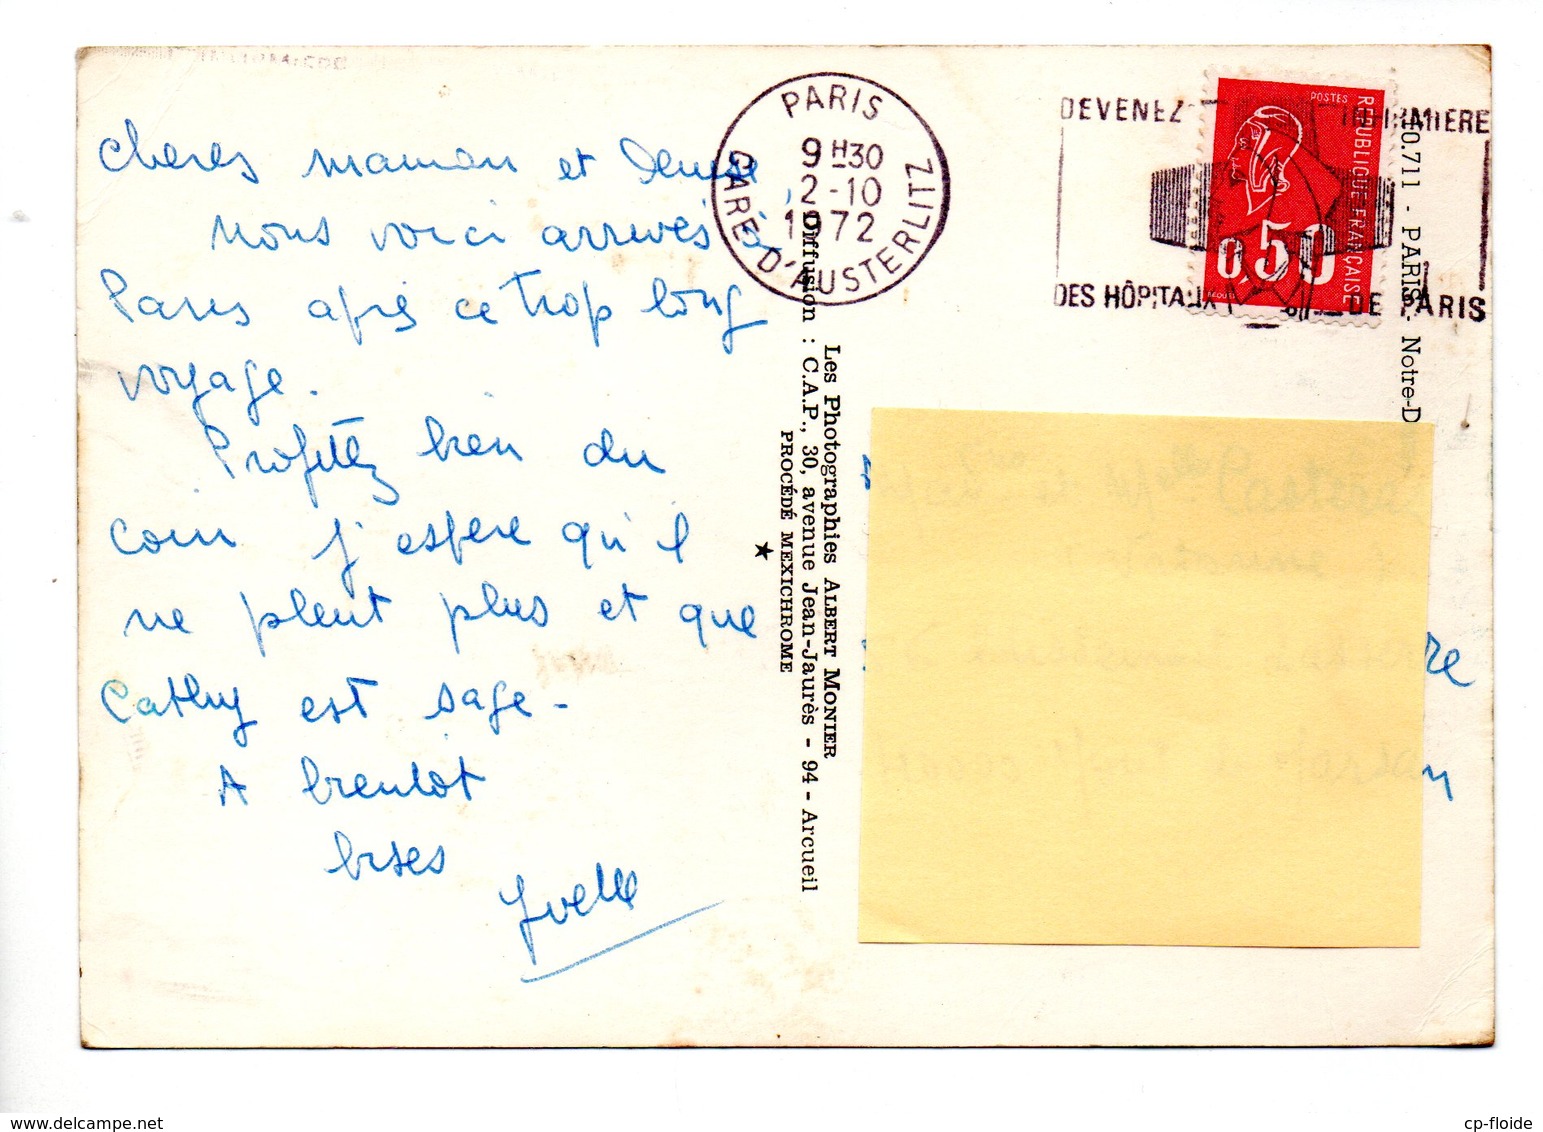 Cheres maman et Denise,
Nous voici arrivés à
Paris après ce trop long
voyage.
Profitez bien du
coin j'espere qu'il
ne pleut plus et que
Cathy est sage-
A bientot
bises
Yvette
PARIS
9H30
2-10
1972
GARE D'AUSTERLITZ
DEVENEZ INFIRMIERE
DES HÔPITAUX DE PARIS
POSTES
REPUBLIQUE FRANÇAISE
0,50
10.711 - PARIS. - Notre-D
Les Photographies ALBERT MONIER
Diffusion : C.A.P., 30, avenue Jean-Jaurès - 94 - Arcueil
PROCÉDÉ MEXICHROME
re
n
cp-floide